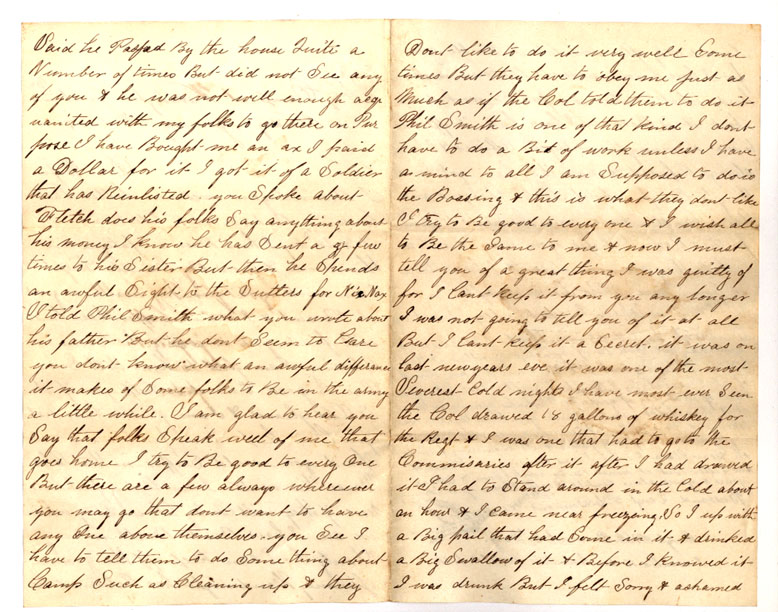 Said he Passad By the house Quite a
Number of times But did not See any
of you & he was not well enough acqu
uanited with my folks to go there on Pur
pose I have Bought me an ax I paid
a Dollar for it I got it of a Soldier
that has Reinlisted. you Spoke about
Fletch does his folks Say anything about
his money I know he has Sent a few
times to his Sister But then he Spends
an awful Sight to the Sutlers for Nix Nax
I told Phil Smith what you wrote about
his father But he dont Seem to Care
you dont know what an awful differance
it makes of Some folks to Be in the army
a little while. I am glad to hear you
Say that folks Speak well of me that
goes home I try to Be good to every One
But there are a few always whereever
you may go that dont want to have
any One above themselves. you See I
have to tell them to do Some thing about
Camp Such as Cleaning up & they
Dont like to do it very well Some
times But they have to obey me just as
Much as if the Col told them to do it
Phil Smith is one of that kind I dont
have to do a Bit of work unless I have
a mind to all I am Supposed to do is
the Bossing & this is what they dont like
I try to Be good to every one & I wish all
to Be the Same to me & now I must
tell you of a great thing I was guilty of
for I Cant keep it from you any longer
I was not going to tell you of it at all
But I Cant keep it a Secret. it was on
last newyears eve it was one of the most
Severest Cold nights I have most ever Seen
the Col drawed 18 gallons of whiskey for
the Regt & I was one that had to go to the
Commisaries after it after I had drawed
it I had to Stand around in the Cold about
an how & I came near freezing. So I up with
a Big pail that had Some in it & drinked
a Big Swallow of it & Before I knowed it
I was drunk But I felt Sorry & ashamed